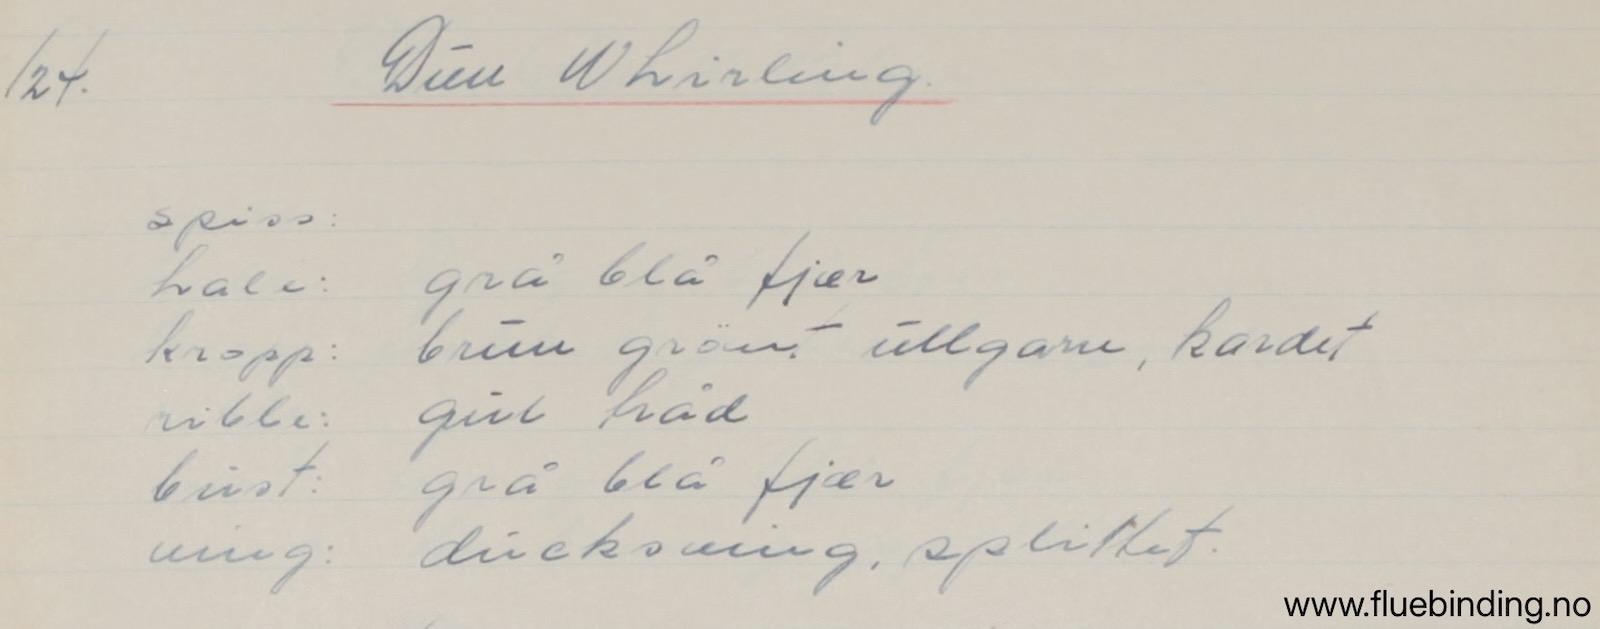 124. Dun Whirling.
spiss:
hale: grå blå fjær
kropp: brun grønt ullgarn, kardet
ribbe: gul tråd
bust: grå blå fjær
ving: duckswing, splittet.
www.fluebinding.no